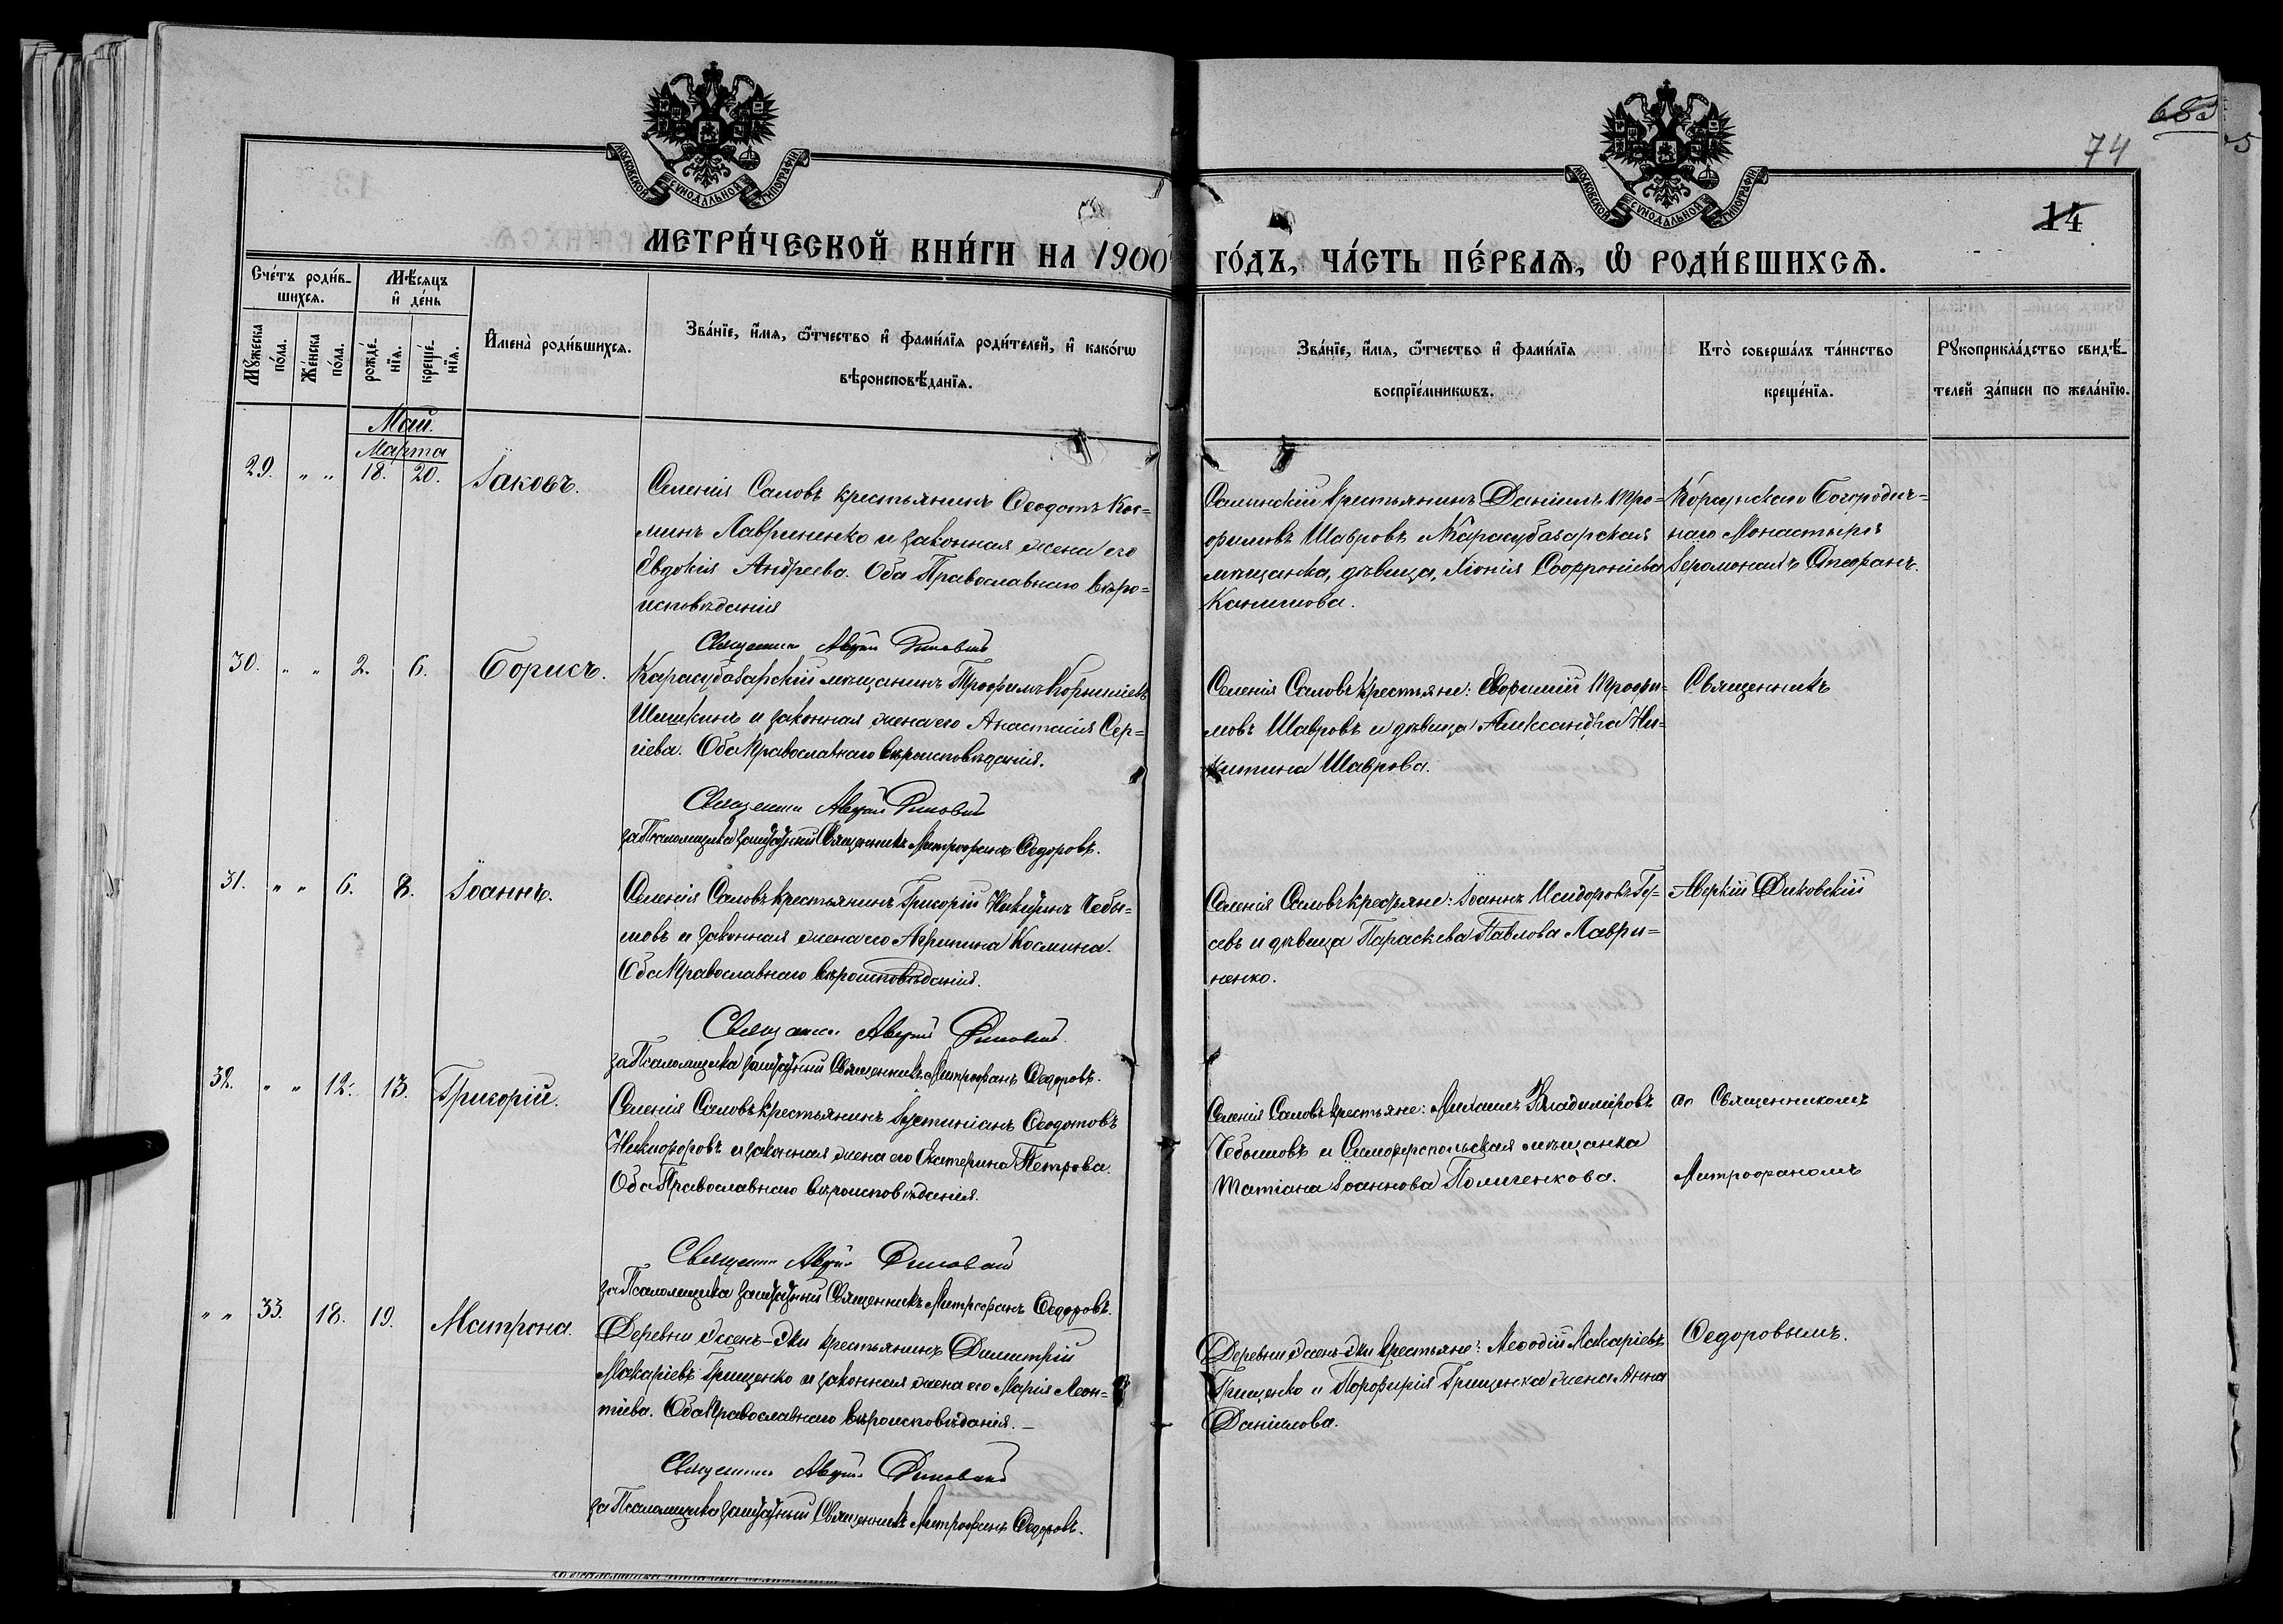 МОСКОВСКОЙ СУНОДАЛЬНОЙ ТИПОГРАФІИ
МОСКОВСКОЙ СУНОДАЛЬНОЙ ТИПОГРАФІИ
74
14
МЕТРИ́ЧЕСКОЙ КНИ́ГИ НА 1900 ГО́ДЪ, ЧА́СТЬ ПЕ́РВАѦ, Ѡ РОДИ́ВШИХСѦ.
Сче́тъ роди́в-
шихсѧ.
Мѣ́сѧцъ
и҆ де́нь
Мꙋ́жеска
по́ла.
Же́нска
по́ла.
рожде́-
нїѧ.
креще́-
нїѧ.
И҆мена̀ роди́вшихсѧ.
Зва́нїе, и҆́мѧ, ѻ҆́тчество и҆ фами́лїѧ роди́телей, и҆ како́гѡ
вѣроисповѣ́данїѧ.
Зва́нїе, и҆́мѧ, ѻ҆́тчество и҆ фами́лїѧ
воспрїе́мникѡвъ.
Кто̀ соверша́лъ та́инство
креще́нїѧ.
Рꙋкоприкла́дство свидѣ́-
телей за́писи по жела́нїю.
Май.
Марта
29. " " 18. 20. Іаковъ.
Селенія Саловъ крестьянинъ Ѳеодотъ Кос-
минъ Лавриненко и законная жена его
Евдокія Андреева. Оба Православнаго веро-
исповѣданія
Священник Аверкій Диковскій
Салынскій крестьянинъ Даніилъ Тро-
фимовъ Шавровъ и Карасубазарская
мѣщанка, дѣвица, Хіонія Софроніева
Корсунскаго Богородич-
наго Монастыря
Іеромонахъ Стефанъ.
30. " " 2. 6. Борисъ.
Карасубазарскій мѣщанинъ Трофимъ Корниліевъ
Шишкинъ и законная жена его Анастасія Сер-
гіева. Оба Православнаго вѣроисповѣданія.
Священник Аверкій Диковскій
за Псаломщика заштатный Священникъ Митрофанъ Ѳедоровъ.
Селенія Саловъ крестьяне: Евфимій Трофи-
мовъ Шавровъ и дѣвица Александра Ни-
китина Шаврова.
Священникъ
31. " " 6. 8. Іоаннъ.
Селенія Саловъ крестьянинъ Григорій Никитинъ Чебы-
шовъ и законная жена его Агрипина Космина.
Оба Православнаго вѣроисповѣданія.
Священник Аверкій Диковскій
за Псаломщика заштатный Священникъ Митрофанъ Ѳедоровъ.
Селенія Саловъ крестьяне: Іоаннъ Исидоровъ Гу-
севъ и дѣвица Параскева Павлова Лаври-
ненко.
Аверкій Диковскій
32. " " 12. 13. Григорій.
Селенія Саловъ крестьянинъ Іустиніанъ Ѳеодотовъ
Никифоровъ и законная жена его Екатерина Петрова.
Оба Православнаго вѣроисповѣданія.
Священник Аверкій Диковскій
за Псаломщика заштатный Священникъ Митрофанъ Ѳедоровъ.
Селенія Саловъ крестьяне: Михаилъ Владиміровъ
Чебышовъ и Симферопольская мѣщанка
Татіана Іоаннова Поличенкова.
со Священникомъ
Митрофаномъ
" " 33. 18. 19. Матрона.
Деревни Эссенъ-Эки крестьянинъ Димитрій
Макаріевъ Грищенко и законная жена его Марія Леон-
тіева. Оба Православнаго вѣроисповѣданія. —
Священник Аверкій Диковскій
за Псаломщика заштатный Священникъ Митрофанъ Ѳедоровъ.
Деревни Эссенъ-Эки крестьяне: Меѳодій Макаріевъ
Грищенко и Порфирія Грищенка жена Анна
Даніилова.
Ѳедоровымъ.